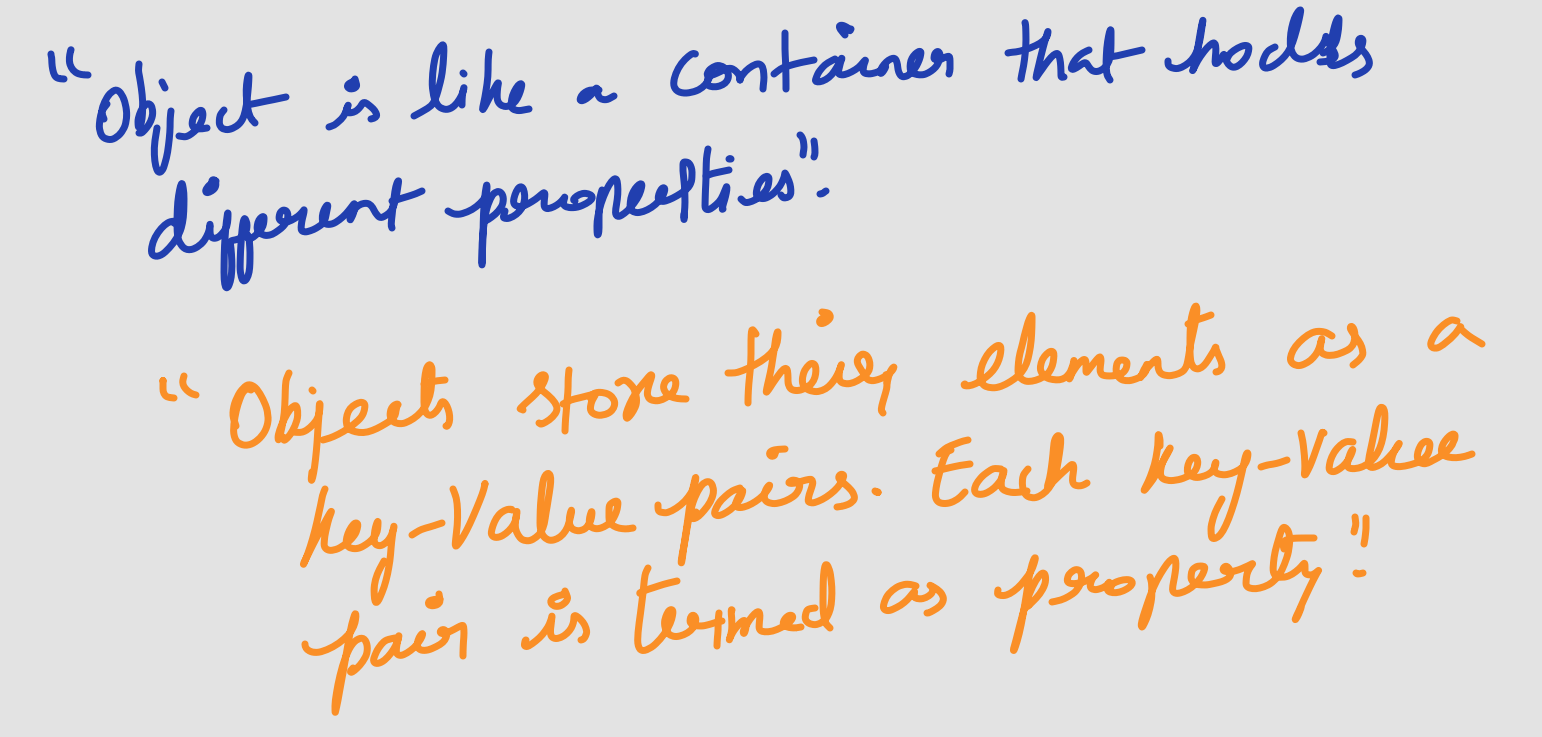 "Object is like a container that holds
different properties".
"Objects store their elements as a
key-Value pairs. Each key-Value
pair is termed as property".